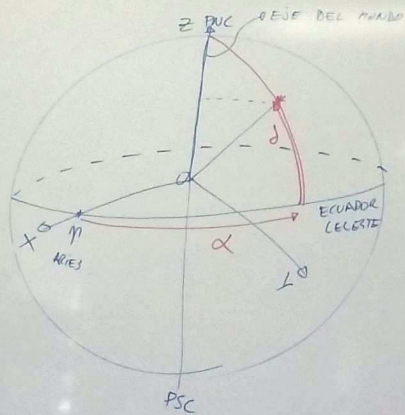 Z PNC
O EJE DEL MUNDO
δ
O
ECUADOR
CELESTE
X
ARIES
α
Y
PSC